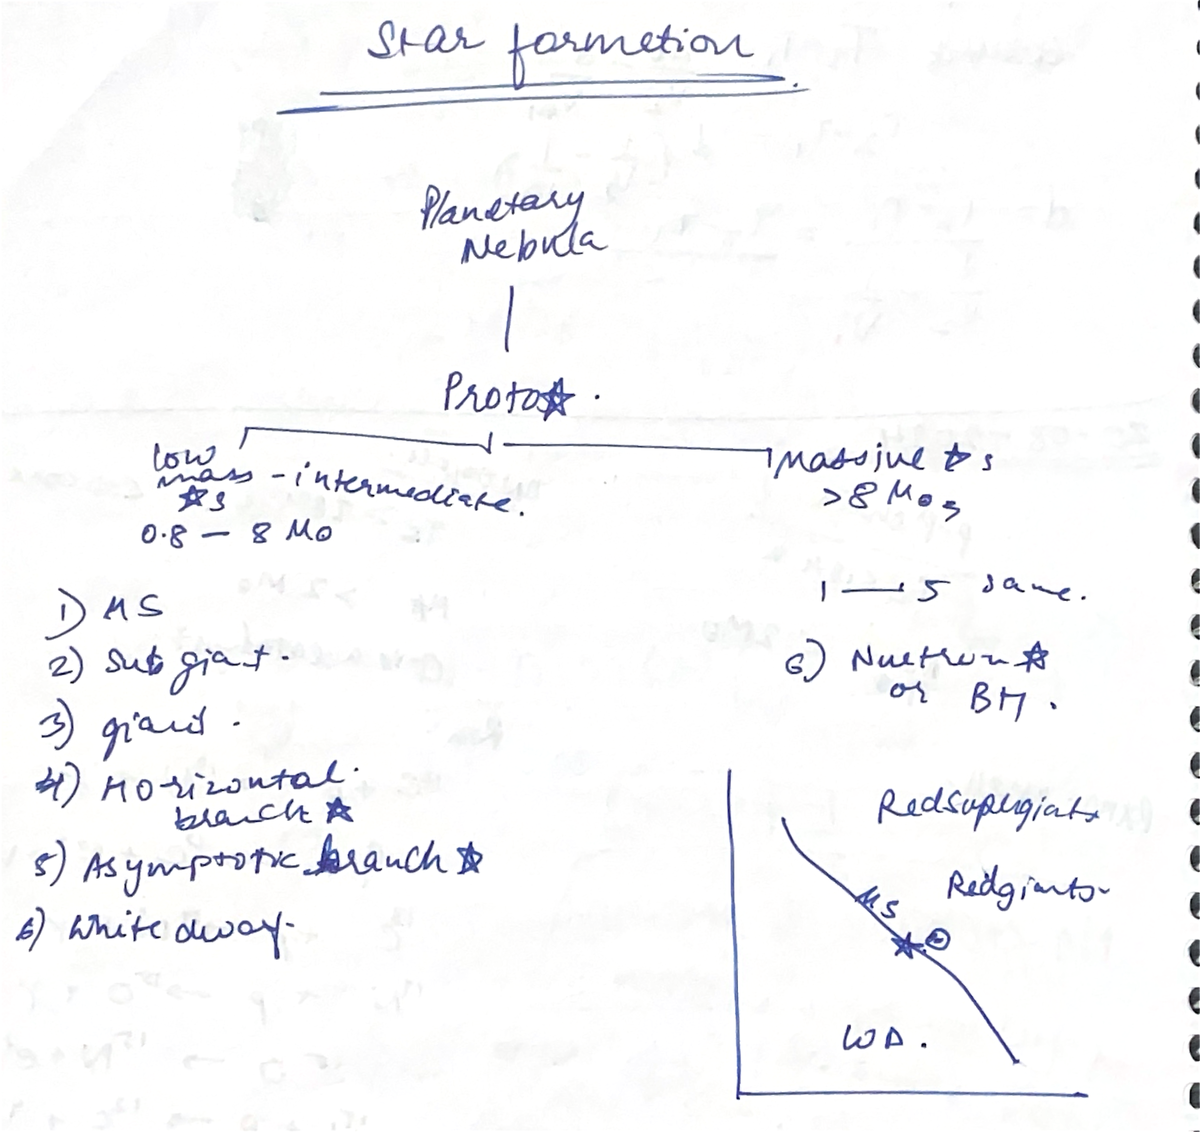 Star formetion
Planetary
Nebula
Proto☆ .
low
mass - intermediate.
☆s
0.8 — 8 M⊙
Massive ☆s
>8 M⊙s
1) MS
2) Sub giant.
3) giant.
4) Horizontal.
branch ☆
5) Asymptotic branch ☆
6) White dwarf.
1 — 5 same.
6) Nuetron ☆
or BH .
Redsupergiants
Redgiants.
MS
☆ ⊙
WD .